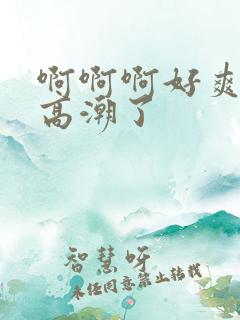 啊啊啊好爽
高潮了
智慧呀
未经同意禁止转载